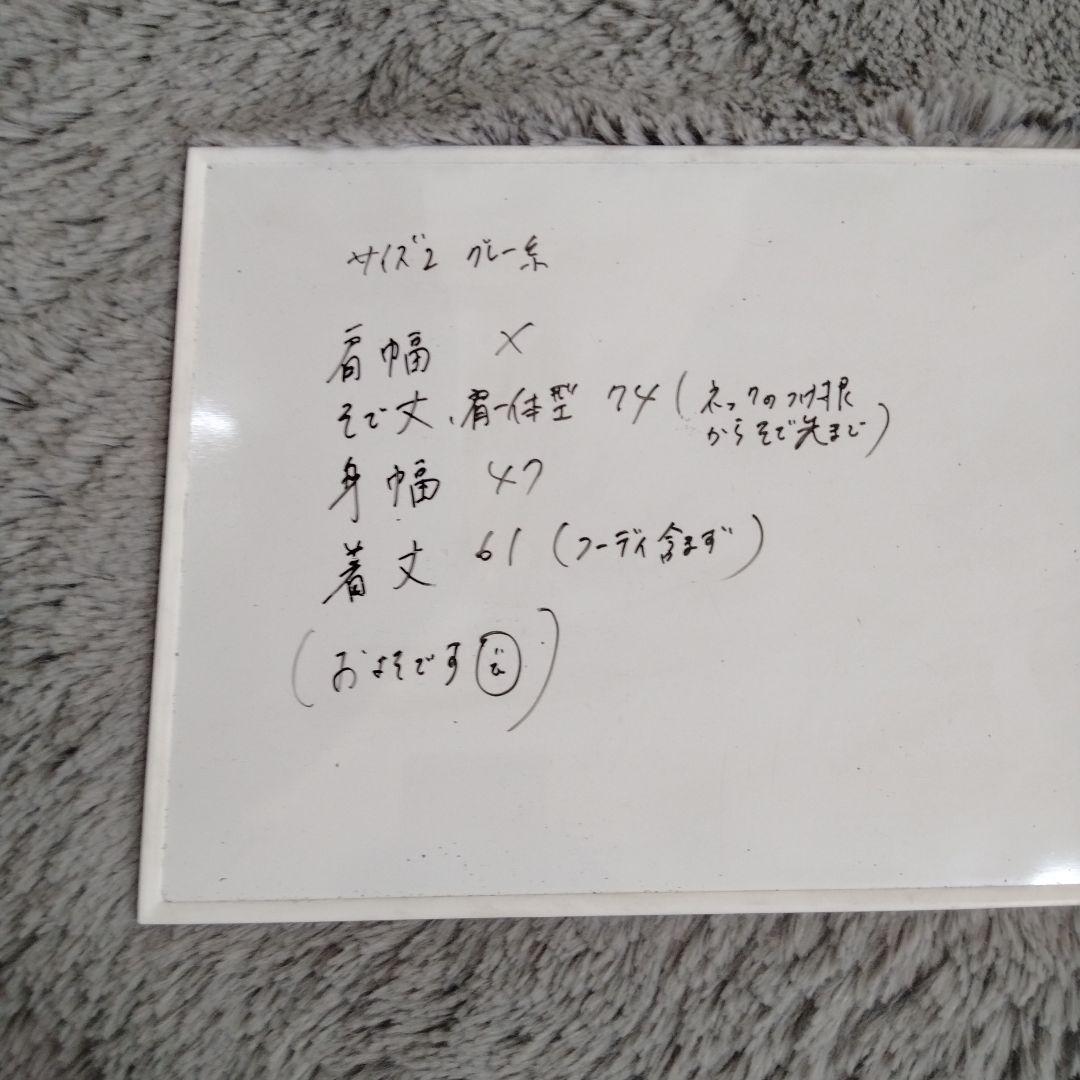 サイズ2 グレー系
肩幅 ×
そで丈、肩一体型 74(ネックのつけ根
からそで先まで)
身幅 47
着丈 61(フーディ含まず)
(おょそです)